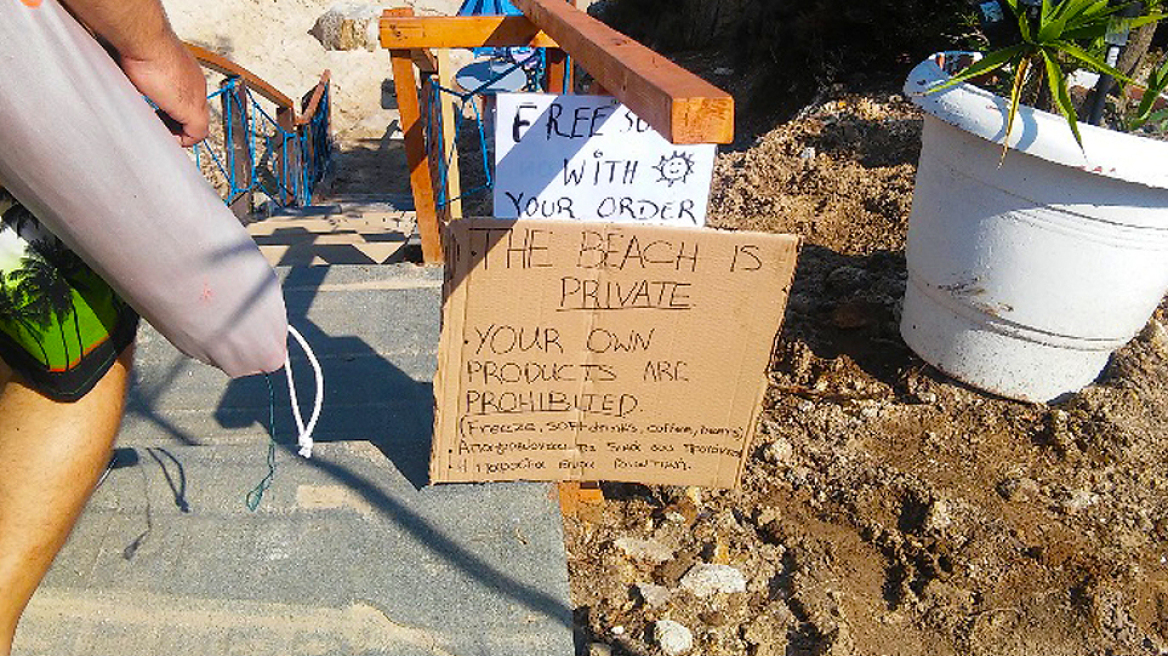 FREE
WITH
YOUR ORDER
. THE BEACH IS
PRIVATE
. YOUR OWN
PRODUCTS ARE
PROHIBITED.
(Freeze, soft drinks, coffees, beers)
. Απαγορεύονται τα δικά σου προϊόντα
. Η παραλία είναι ιδιωτική.